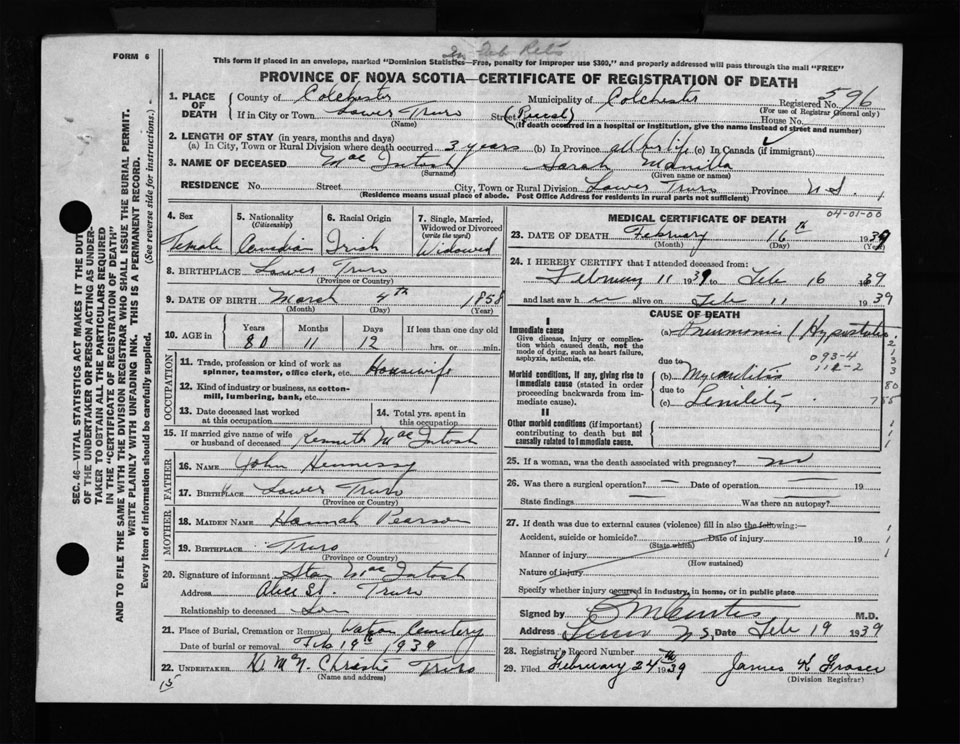 In Feb Rets
FORM 6
This form if placed in an envelope, marked "Dominion Statistics—Free, penalty for improper use $300," and properly addressed will pass through the mail "FREE"
PROVINCE OF NOVA SCOTIA—CERTIFICATE OF REGISTRATION OF DEATH
SEC. 46—VITAL STATISTICS ACT MAKES IT THE DUTY
OF THE UNDERTAKER OR PERSON ACTING AS UNDER-
TAKER TO OBTAIN ALL THE PARTICULARS REQUIRED
IN THE "CERTIFICATE OF REGISTRATION OF DEATH"
AND TO FILE THE SAME WITH THE DIVISION REGISTRAR WHO SHALL ISSUE THE BURIAL PERMIT.
WRITE PLAINLY WITH UNFADING INK. THIS IS A PERMANENT RECORD.
Every item of information should be carefully supplied. (See reverse side for instructions.)
1. PLACE OF DEATH County of Colchester Municipality of Colchester Registered No. 596
(For use of Registrar General only)
If in City or Town Lower Truro Street (Rural) House No.
(Name) (If death occurred in a hospital or institution, give the name instead of street and number)
2. LENGTH OF STAY (in years, months and days)
(a) In City, Town or Rural Division where death occurred 3 years (b) In Province all her life (c) In Canada (if immigrant)
3. NAME OF DECEASED Mac Intosh Sarah Manilla
(Surname) (Given name or names)
RESIDENCE No. Street City, Town or Rural Division Lower Truro Province N.S.
(Residence means usual place of abode. Post Office Address for residents in rural parts not sufficient)
04-01-00
4. Sex 5. Nationality (Citizenship) 6. Racial Origin 7. Single, Married, Widowed or Divorced (write the word)
Female Canadian Irish Widowed
8. BIRTHPLACE Lower Truro
(Province or Country)
9. DATE OF BIRTH March 4th 1858
(Month) (Day) (Year)
10. AGE in Years Months Days If less than one day old
80 11 12 hrs. or min.
OCCUPATION
11. Trade, profession or kind of work as spinner, teamster, office clerk, etc. Housewife
12. Kind of industry or business, as cotton-mill, lumbering, bank, etc.
13. Date deceased last worked at this occupation 14. Total yrs. spent in this occupation
15. If married give name of wife or husband of deceased Kenneth Mac Intosh
FATHER
16. NAME John Hennessy
17. BIRTHPLACE Lower Truro
(Province or Country)
MOTHER
18. MAIDEN NAME Hannah Pearson
19. BIRTHPLACE Truro
(Province or Country)
20. Signature of informant Mac Intosh
Address Alice St. Truro
Relationship to deceased Son
21. Place of Burial, Cremation or Removal Cemetery
Date of burial or removal Feb 19th 1939
22. UNDERTAKER Truro
(Name and address)
15
MEDICAL CERTIFICATE OF DEATH
23. DATE OF DEATH February 16th 1939
(Month) (Day) (Year)
24. I HEREBY CERTIFY that I attended deceased from:
February 11 1939 to Feb 16 1939
and last saw her alive on Feb 11 1939
CAUSE OF DEATH
I
Immediate cause
Give disease, injury or complication which caused death, not the mode of dying, such as heart failure, asphyxia, asthenia, etc.
(a) Pneumonia (Hypostatic
093-4
due to
112-2
Morbid conditions, if any, giving rise to immediate cause (stated in order proceeding backwards from immediate cause).
(b) Myocarditis
due to
(c) Senility
II
Other morbid conditions (if important) contributing to death but not causally related to immediate cause.
25. If a woman, was the death associated with pregnancy? no
26. Was there a surgical operation? — Date of operation — 19
State findings — Was there an autopsy?
27. If death was due to external causes (violence) fill in also the following:—
Accident, suicide or homicide? Date of injury 19
(State which)
Manner of injury
(How sustained)
Nature of injury
Specify whether injury occurred in industry, in home, or in public place
Signed by E M Curtis M.D.
Address Truro N.S. Date Feb 19 1939
28. Registrar's Record Number
29. Filed February 24th 1939 James K Fraser
(Division Registrar)